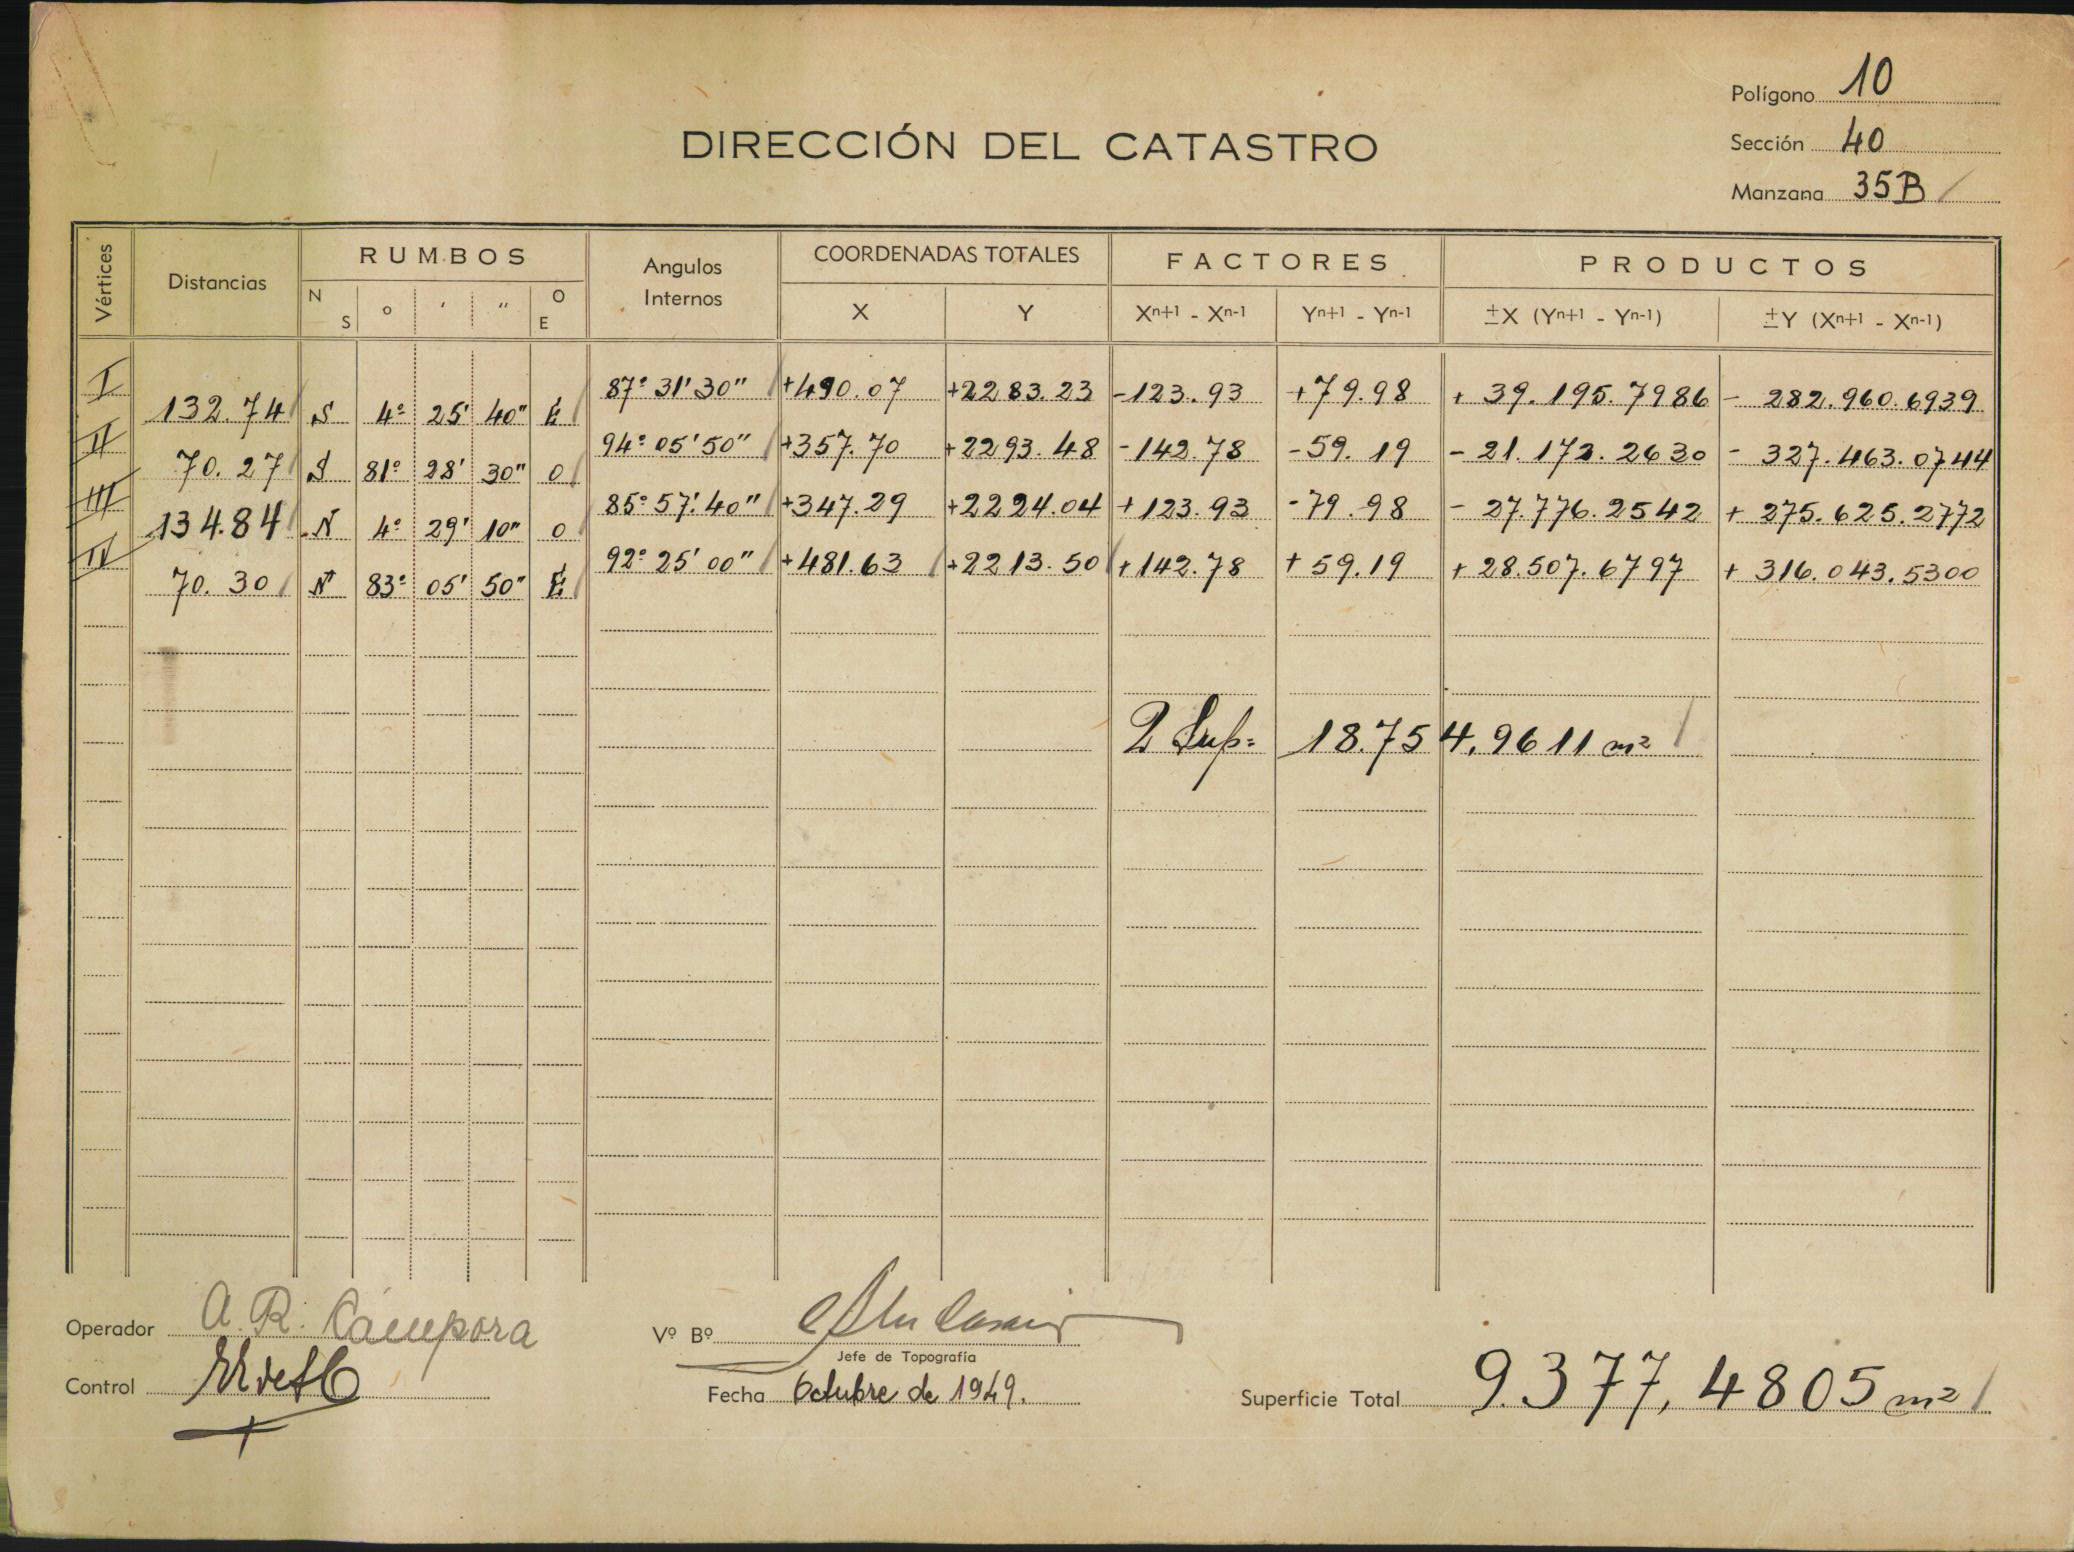 Polígono 10
DIRECCIÓN DEL CATASTRO
Sección 40
Manzana 35B
Vértices Distancias RUMBOS Angulos Internos COORDENADAS TOTALES FACTORES PRODUCTOS
N S ° ' " O E X Y Xⁿ⁺¹ - Xⁿ⁻¹ Yⁿ⁺¹ - Yⁿ⁻¹ ±X (Yⁿ⁺¹ - Yⁿ⁻¹) ±Y (Xⁿ⁺¹ - Xⁿ⁻¹)
I 87° 31' 30" +490.07 +2283.23 -123.93 +79.98 + 39.195.7986 - 282.960.6939
132.74 S 4° 25' 40" E
II 94° 05' 50" +357.70 +2293.48 -142.78 -59.19 - 21.172.2630 - 327.463.0744
70.27 S 81° 28' 30" O
III 85° 57' 40" +347.29 +2224.04 +123.93 -79.98 - 27.776.2542 + 275.625.2772
134.84 N 4° 29' 10" O
IV 92° 25' 00" +481.63 +2213.50 +142.78 +59.19 + 28.507.6797 + 316.043.5300
70.30 N 83° 05' 50" E
2 Sup= 18.754,9611 m²
Operador A. R. Cámpora
Vº Bº
Jefe de Topografía
Control
Fecha Octubre de 1949.
Superficie Total 9.377,4805 m²